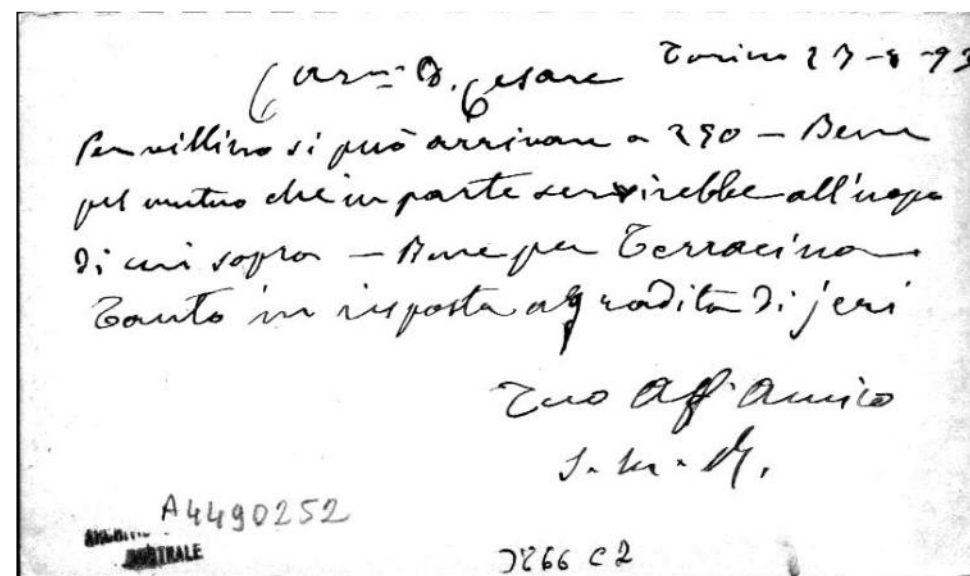 Car.mo D. Cesare Torino 27-8-93
Per villino si può arrivare a 290 — Bene
pel mutuo che in parte servirebbe all'uopo
di cui sopra — Bene per Terracina
Tanto in risposta a gradita di jeri
Tuo Aff. Amico
S. M.
A4490252
3266 C2